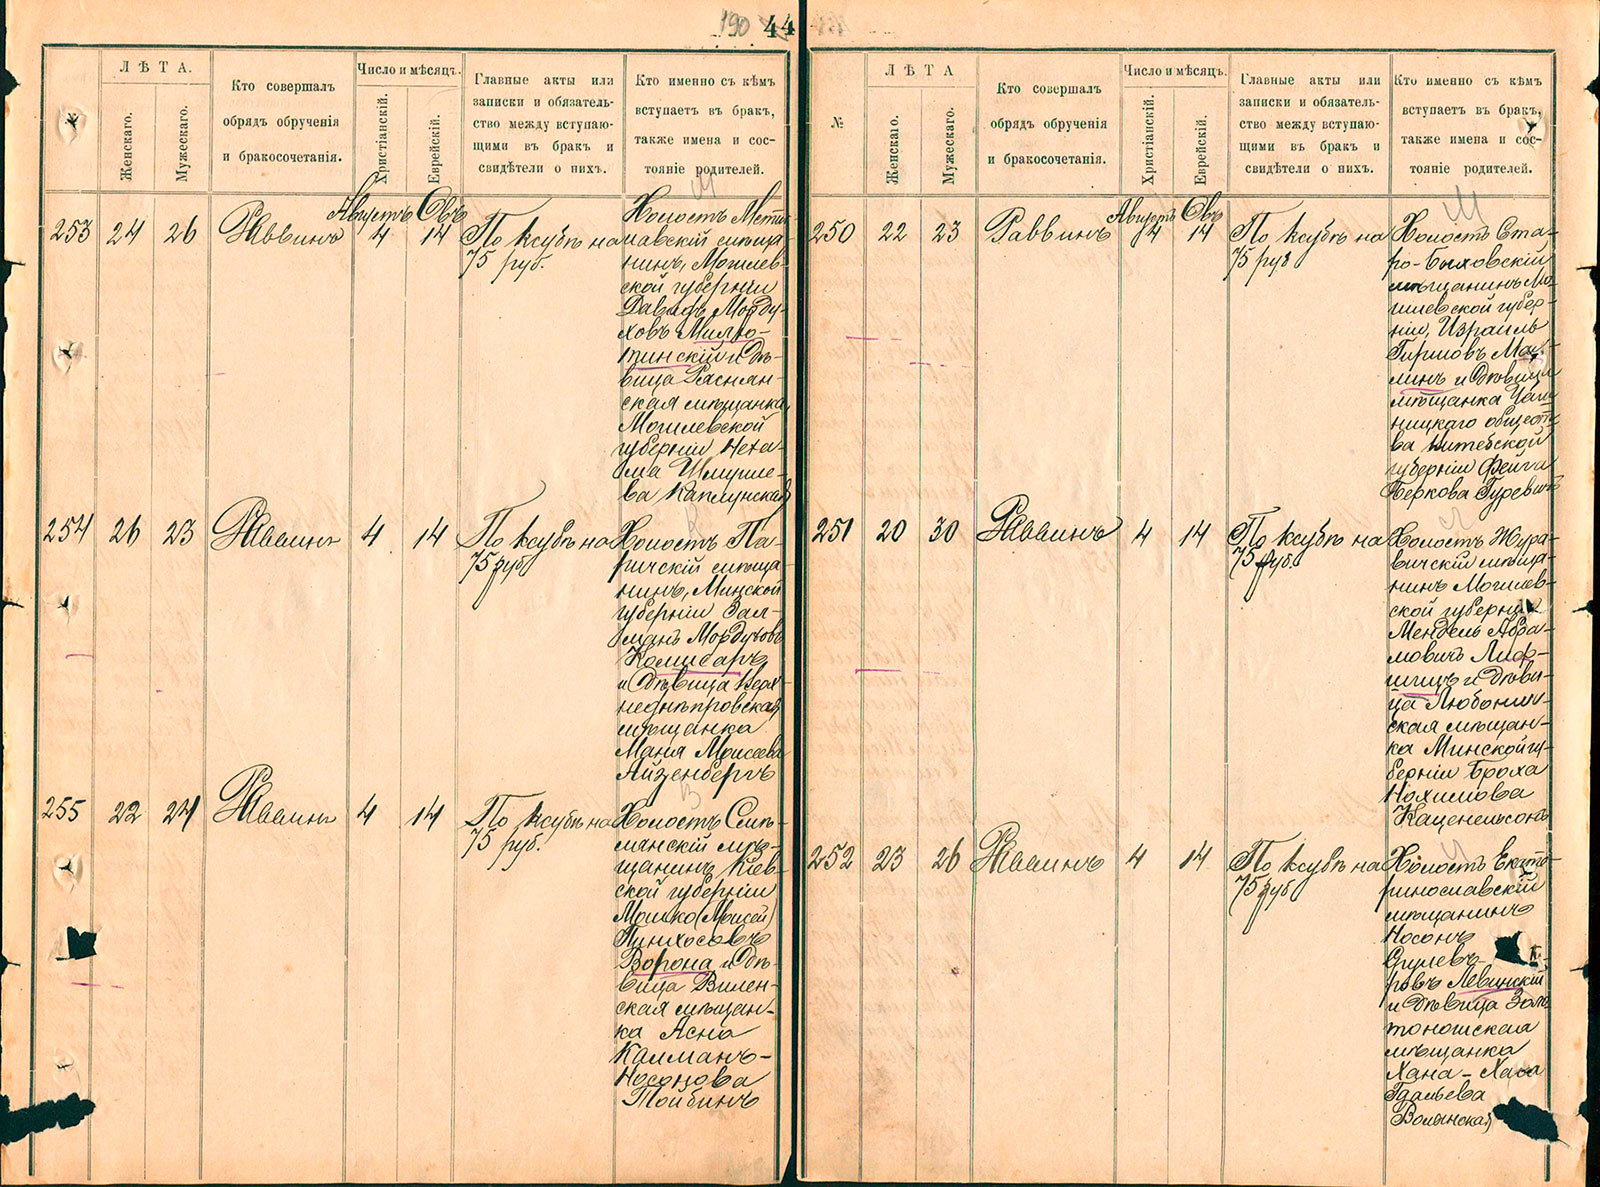 190 44
ЛѢТА.
Женскаго.
Мужескаго.
Кто совершалъ
обрядъ обрученія
и бракосочетанія.
Число и мѣсяцъ.
Христіанскій.
Еврейскій.
Главные акты или
записки и обязатель-
ство между вступаю-
щими въ бракъ и
свидѣтели о нихъ.
Кто именно съ кѣмъ
вступаетъ въ бракъ,
также имена и сос-
тояніе родителей.
Августъ Овъ
253 24 26 Раввинъ 4 14
По ксубѣ на
75 руб.
Холостъ Мсти-
лавскій мѣща-
нинъ, Могилев-
ской губерніи
Давидъ Морду-
ховъ Милю-
тинскій и дѣ-
вица Раснян-
ская мѣщанка,
Могилевской
губерніи Неха-
ма Шмуиле-
ва Каплунская
254 26 23 Раввинъ 4 14
По ксубѣ на
75 руб.
Холостъ Па-
ричскій мѣща-
нинъ, Минской
губерніи Зал-
манъ Мордуховъ
Комисаръ
и дѣвица Верх-
неднѣпровская
мѣщанка
Маня Моисеева
Айзенбергъ
255 22 24 Раввинъ 4 14
По ксубѣ на
75 руб.
Холостъ Смѣ-
лянскій мѣ-
щанинъ Кіев-
ской губерніи
Мошко (Моисей)
Пинхосовъ
Ворона и дѣ-
вица Вилен-
ская мѣщан-
ка Асна
Калманъ-
Носонова
Тойбинъ
№
ЛѢТА
Женскаго.
Мужескаго.
Кто совершалъ
обрядъ обрученія
и бракосочетанія.
Число и мѣсяцъ.
Христіанскій.
Еврейскій.
Главные акты или
записки и обязатель-
ство между вступаю-
щими въ бракъ и
свидѣтели о нихъ.
Кто именно съ кѣмъ
вступаетъ въ бракъ,
также имена и сос-
тояніе родителей.
Августъ Овъ
250 22 23 Раввинъ 4 14
По ксубѣ на
75 руб
Холостъ Ста-
ро-Быховскій
мѣщанинъ Мо-
гилевской губер-
ніи, Израиль
Гиршовъ Мар-
линъ и дѣвица
мѣщанка Чаш-
ницкаго общест-
ва Витебской
губерніи Фейга
Беркова Гуревичъ
251 20 30 Раввинъ 4 14
По ксубѣ на
75 руб.
Холостъ Жура-
вичскій мѣща-
нинъ Могилев-
ской губерніи
Мендель Абра-
мовичъ Лиф-
шицъ и дѣви-
ца Любонич-
ская мѣщан-
ка Минской гу-
берніи Броха
Нохимова
Каценельсонъ
252 23 26 Раввинъ 4 14
По ксубѣ на
75 руб
Холостъ Екате-
ринославскій
мѣщанинъ
Носонъ
ровъ Левинскій
и дѣвица Золо-
тоношская
мѣщанка
Хана-Хася
Гдальева
Волынская